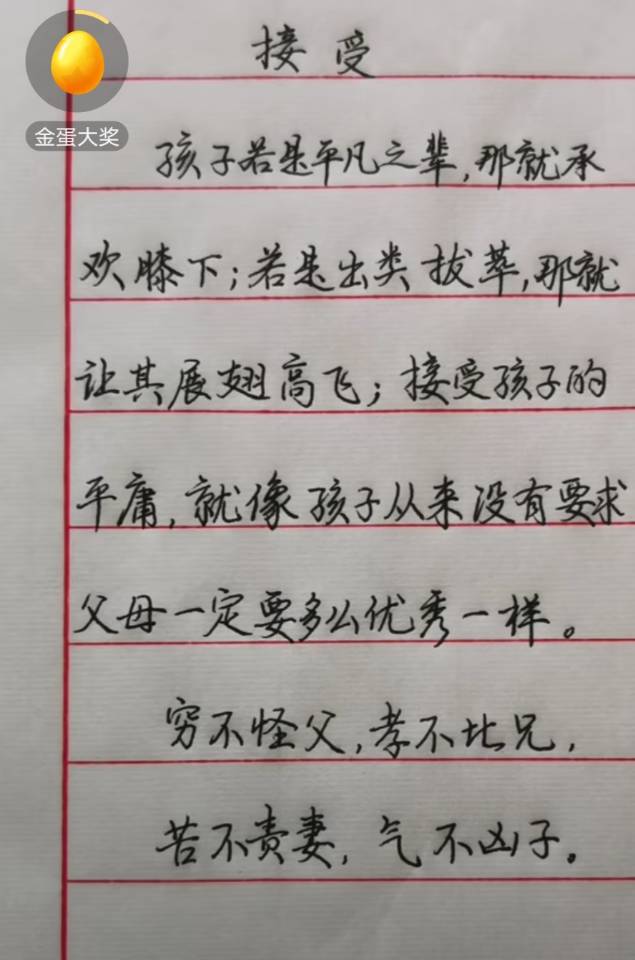 金蛋大奖
接受
孩子若是平凡之辈,那就承
欢膝下;若是出类拔萃,那就
让其展翅高飞;接受孩子的
平庸,就像孩子从来没有要求
父母一定要多么优秀一样。
穷不怪父,孝不比兄,
苦不责妻,气不凶子。